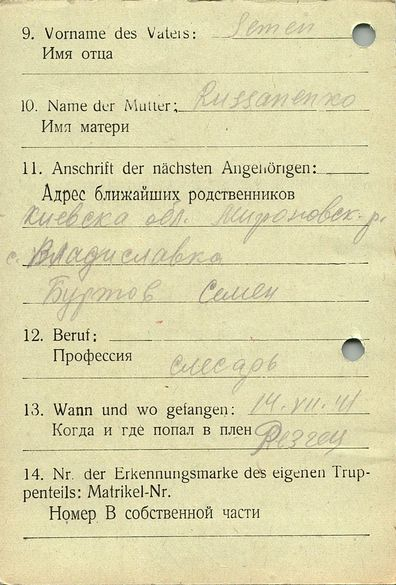 9. Vorname des Vaters: Semen
Имя отца
10. Name der Mutter: Russanenko
Имя матери
11. Anschrift der nächsten Angehörigen:
Адрес ближайших родственников
Киевска обл. Мироновск. р.
с. Владиславка
Буртов Семен
12. Beruf:
Профессия
слесарь
13. Wann und wo gefangen: 14.VII.41
Когда и где попал в плен
14. Nr. der Erkennungsmarke des eigenen Trup-
penteils: Matrikel-Nr.
Номер В собственной части